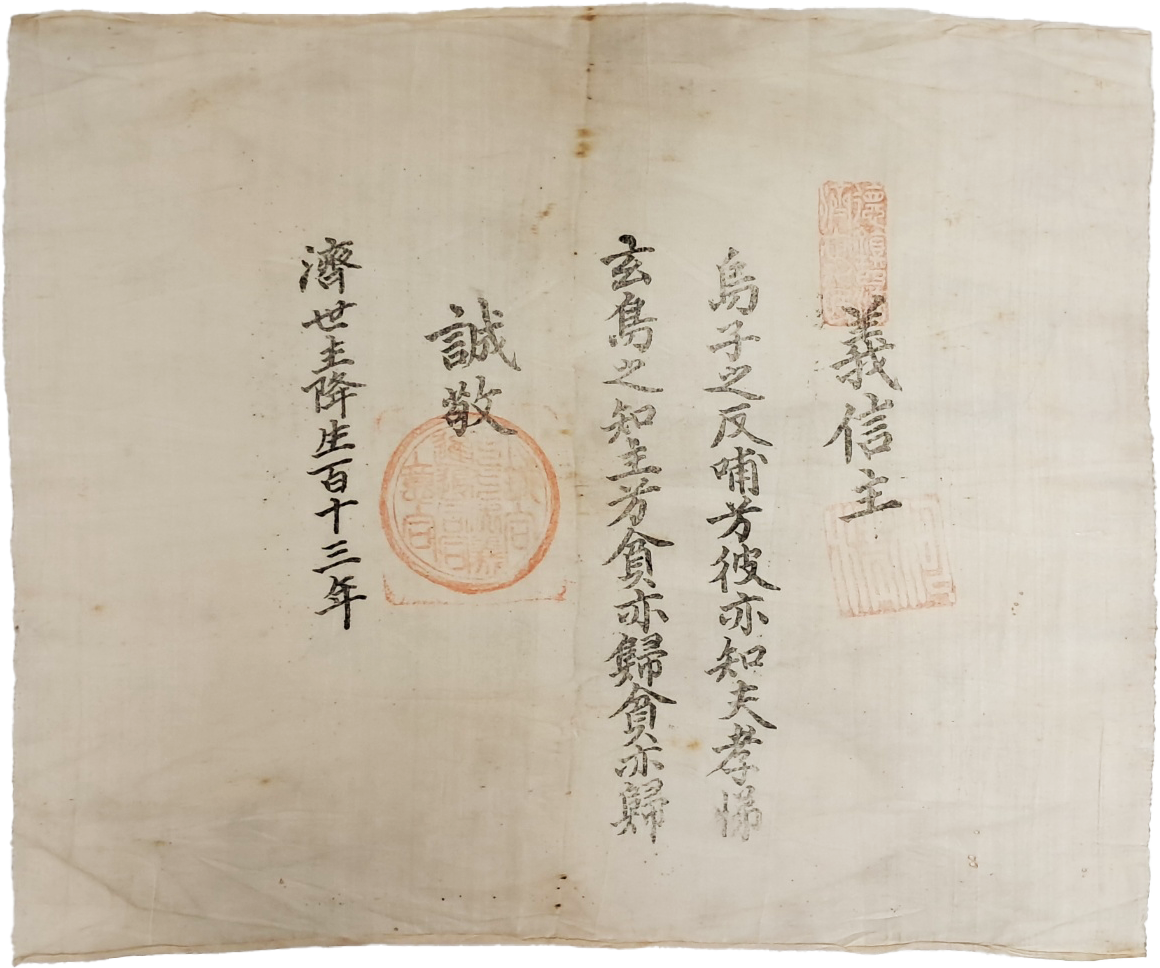 義信主
烏子之反哺兮彼亦知夫孝悌
玄鳥之知主兮貧亦歸貧亦歸
誠敬
濟世主降生百十三年